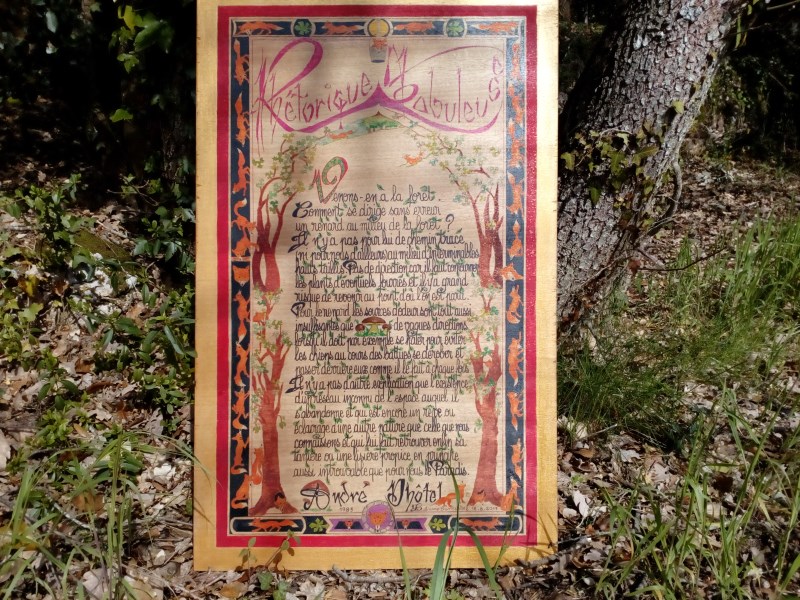 Rhétorique Fabuleuse
Venons-en à la forêt.
Comment se dirige sans erreur
un renard au milieu de la forêt ?
Il n'y a pas pour lui de chemin tracé
ni pour nous d'ailleurs au milieu d'interminables
hauts taillis. Pas de direction car il faut contourner
les plants d'éventuels fourrés et il y a grand
risque de revenir au point d'où l'on est parti.
Pour le renard les sources d'odeur sont tout aussi
insuffisantes que de vagues directions
lorsqu'il doit par exemple se hâter pour éviter
les chiens au cours des battues se dérober et
passer derrière eux comme il le fait à chaque fois
Il n'y a pas d'autre explication que l'existence
d'un réseau inconnu de l'espace auquel il
s'abandonne et qui est encore un rêve ou
éclairage d'une autre nature que celle que nous
connaissons et qui lui fait retrouver enfin sa
tanière ou une lisière propice en
aussi introuvable que pour nous le Paradis.
André Dhôtel